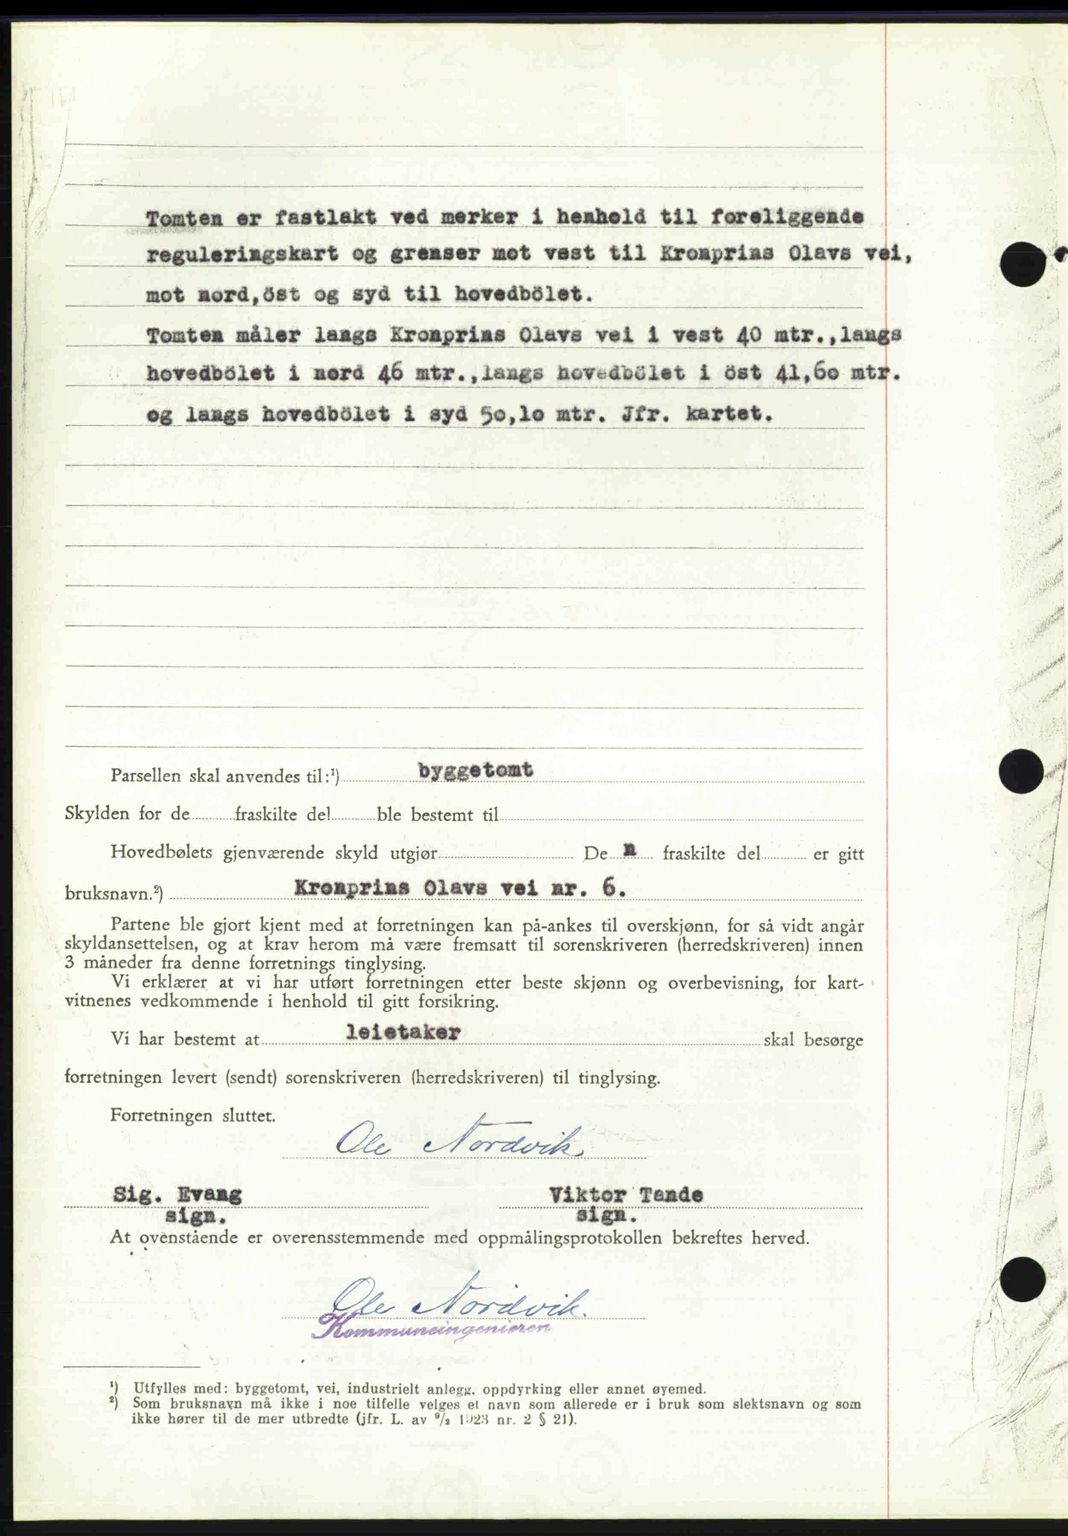 Tomten er fastlakt ved merker i henhold til foreliggende
reguleringskart og grenser mot vest til Kronprins Olavs vei,
mot nord,öst og syd til hovedbölet.
Tomten måler langs Kronprins Olavs vei i vest 40 mtr.,langs
hovedbölet i nord 46 mtr.,langs hovedbölet i öst 41,60 mtr.
og langs hovedbölet i syd 50,10 mtr. Jfr. kartet.
Parsellen skal anvendes til:¹) byggetomt
Skylden for de fraskilte del ble bestemt til
Hovedbølets gjenværende skyld utgjør De n fraskilte del er gitt
bruksnavn.²) Kronprins Olavs vei nr. 6.
Partene ble gjort kjent med at forretningen kan på-ankes til overskjønn, for så vidt angår
skyldansettelsen, og at krav herom må være fremsatt til sorenskriveren (herredskriveren) innen
3 måneder fra denne forretnings tinglysing.
Vi erklærer at vi har utført forretningen etter beste skjønn og overbevisning, for kart-
vitnenes vedkommende i henhold til gitt forsikring.
Vi har bestemt at leietaker skal besørge
forretningen levert (sendt) sorenskriveren (herredskriveren) til tinglysing.
Forretningen sluttet.
Ole Nordvik
Sig. Evang Viktor Tande
sign. sign.
At ovenstående er overensstemmende med oppmålingsprotokollen bekreftes herved.
Ole Nordvik.
Kommuneingeniøren
¹) Utfylles med: byggetomt, vei, industrielt anlegg, oppdyrking eller annet øyemed.
²) Som bruksnavn må ikke i noe tilfelle velges et navn som allerede er i bruk som slektsnavn og som
ikke hører til de mer utbredte (jfr. L. av ⁹/₂ 1923 nr. 2 § 21).